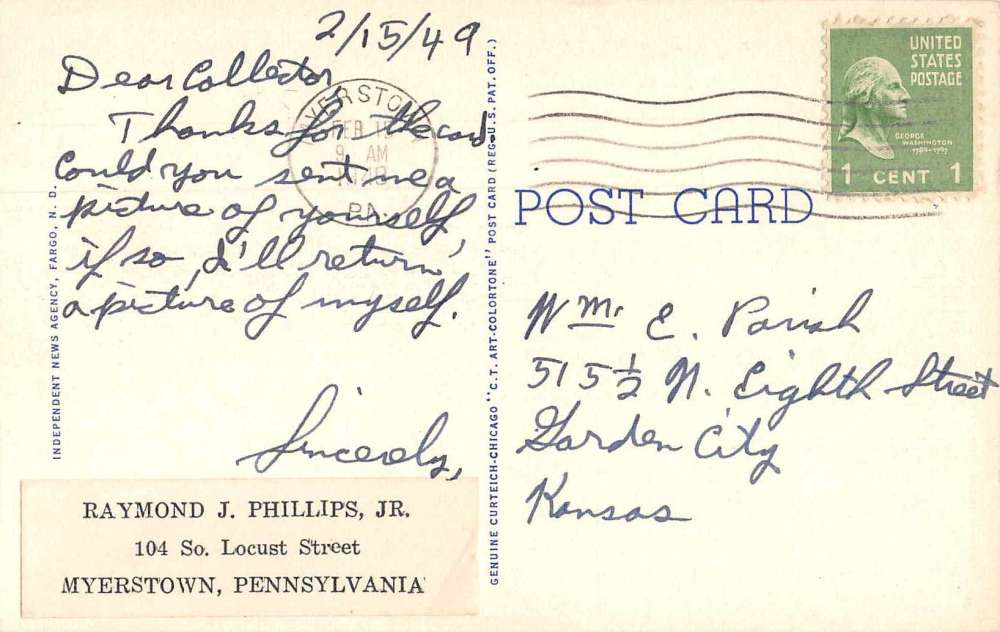 2/15/49
Dear Collector
Thanks for the card.
Could you sent me a
picture of yourself,
if so, I'll return
a picture of myself.
Sincerely,
RAYMOND J. PHILLIPS, JR.
104 So. Locust Street
MYERSTOWN, PENNSYLVANIA
INDEPENDENT NEWS AGENCY, FARGO, N. D.
GENUINE CURTEICH-CHICAGO "C.T. ART-COLORTONE" POST CARD (REG. U.S. PAT. OFF.)
MYERSTOWN
FEB
9 AM
PA.
UNITED
STATES
POSTAGE
GEORGE
WASHINGTON
1789-1797
1 CENT 1
POST CARD
Wm. E. Parish
515 1/2 N. Eighth Street
Garden City
Kansas